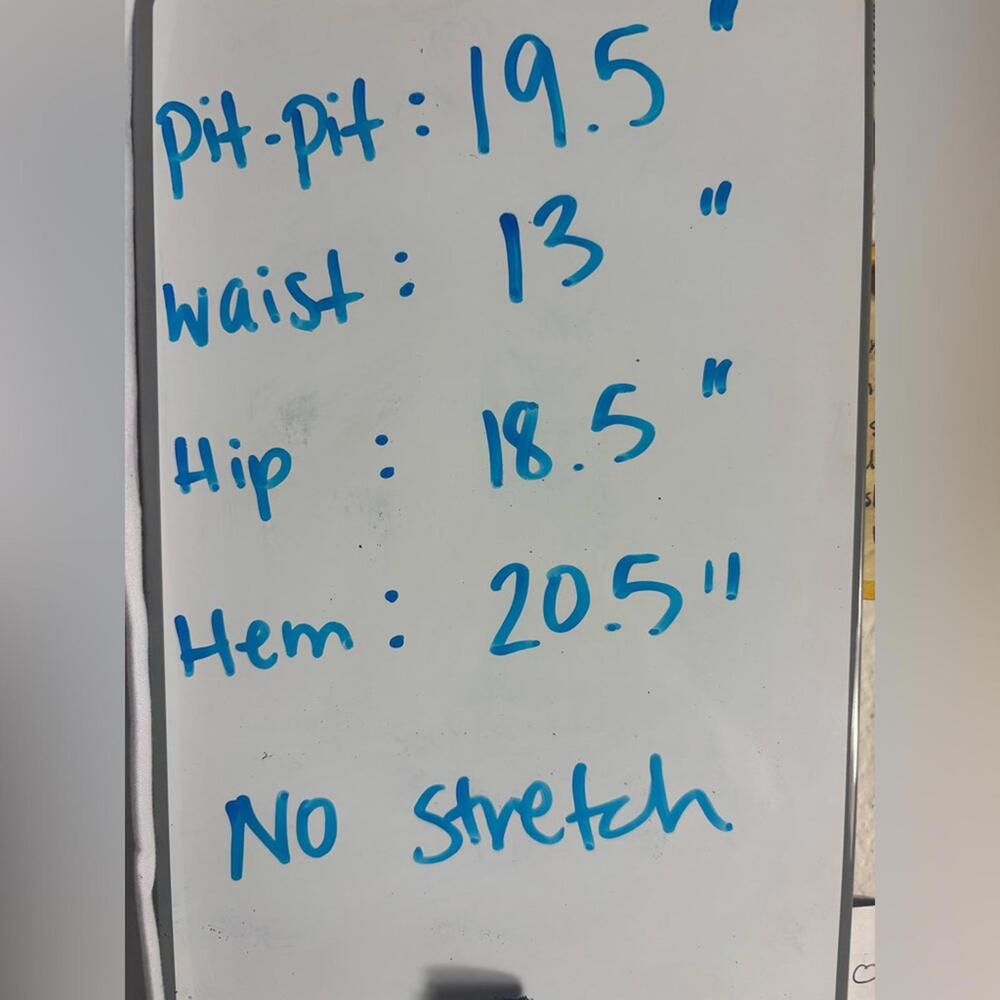 Pit-Pit: 19.5"
Waist: 13"
Hip: 18.5"
Hem: 20.5"
No stretch